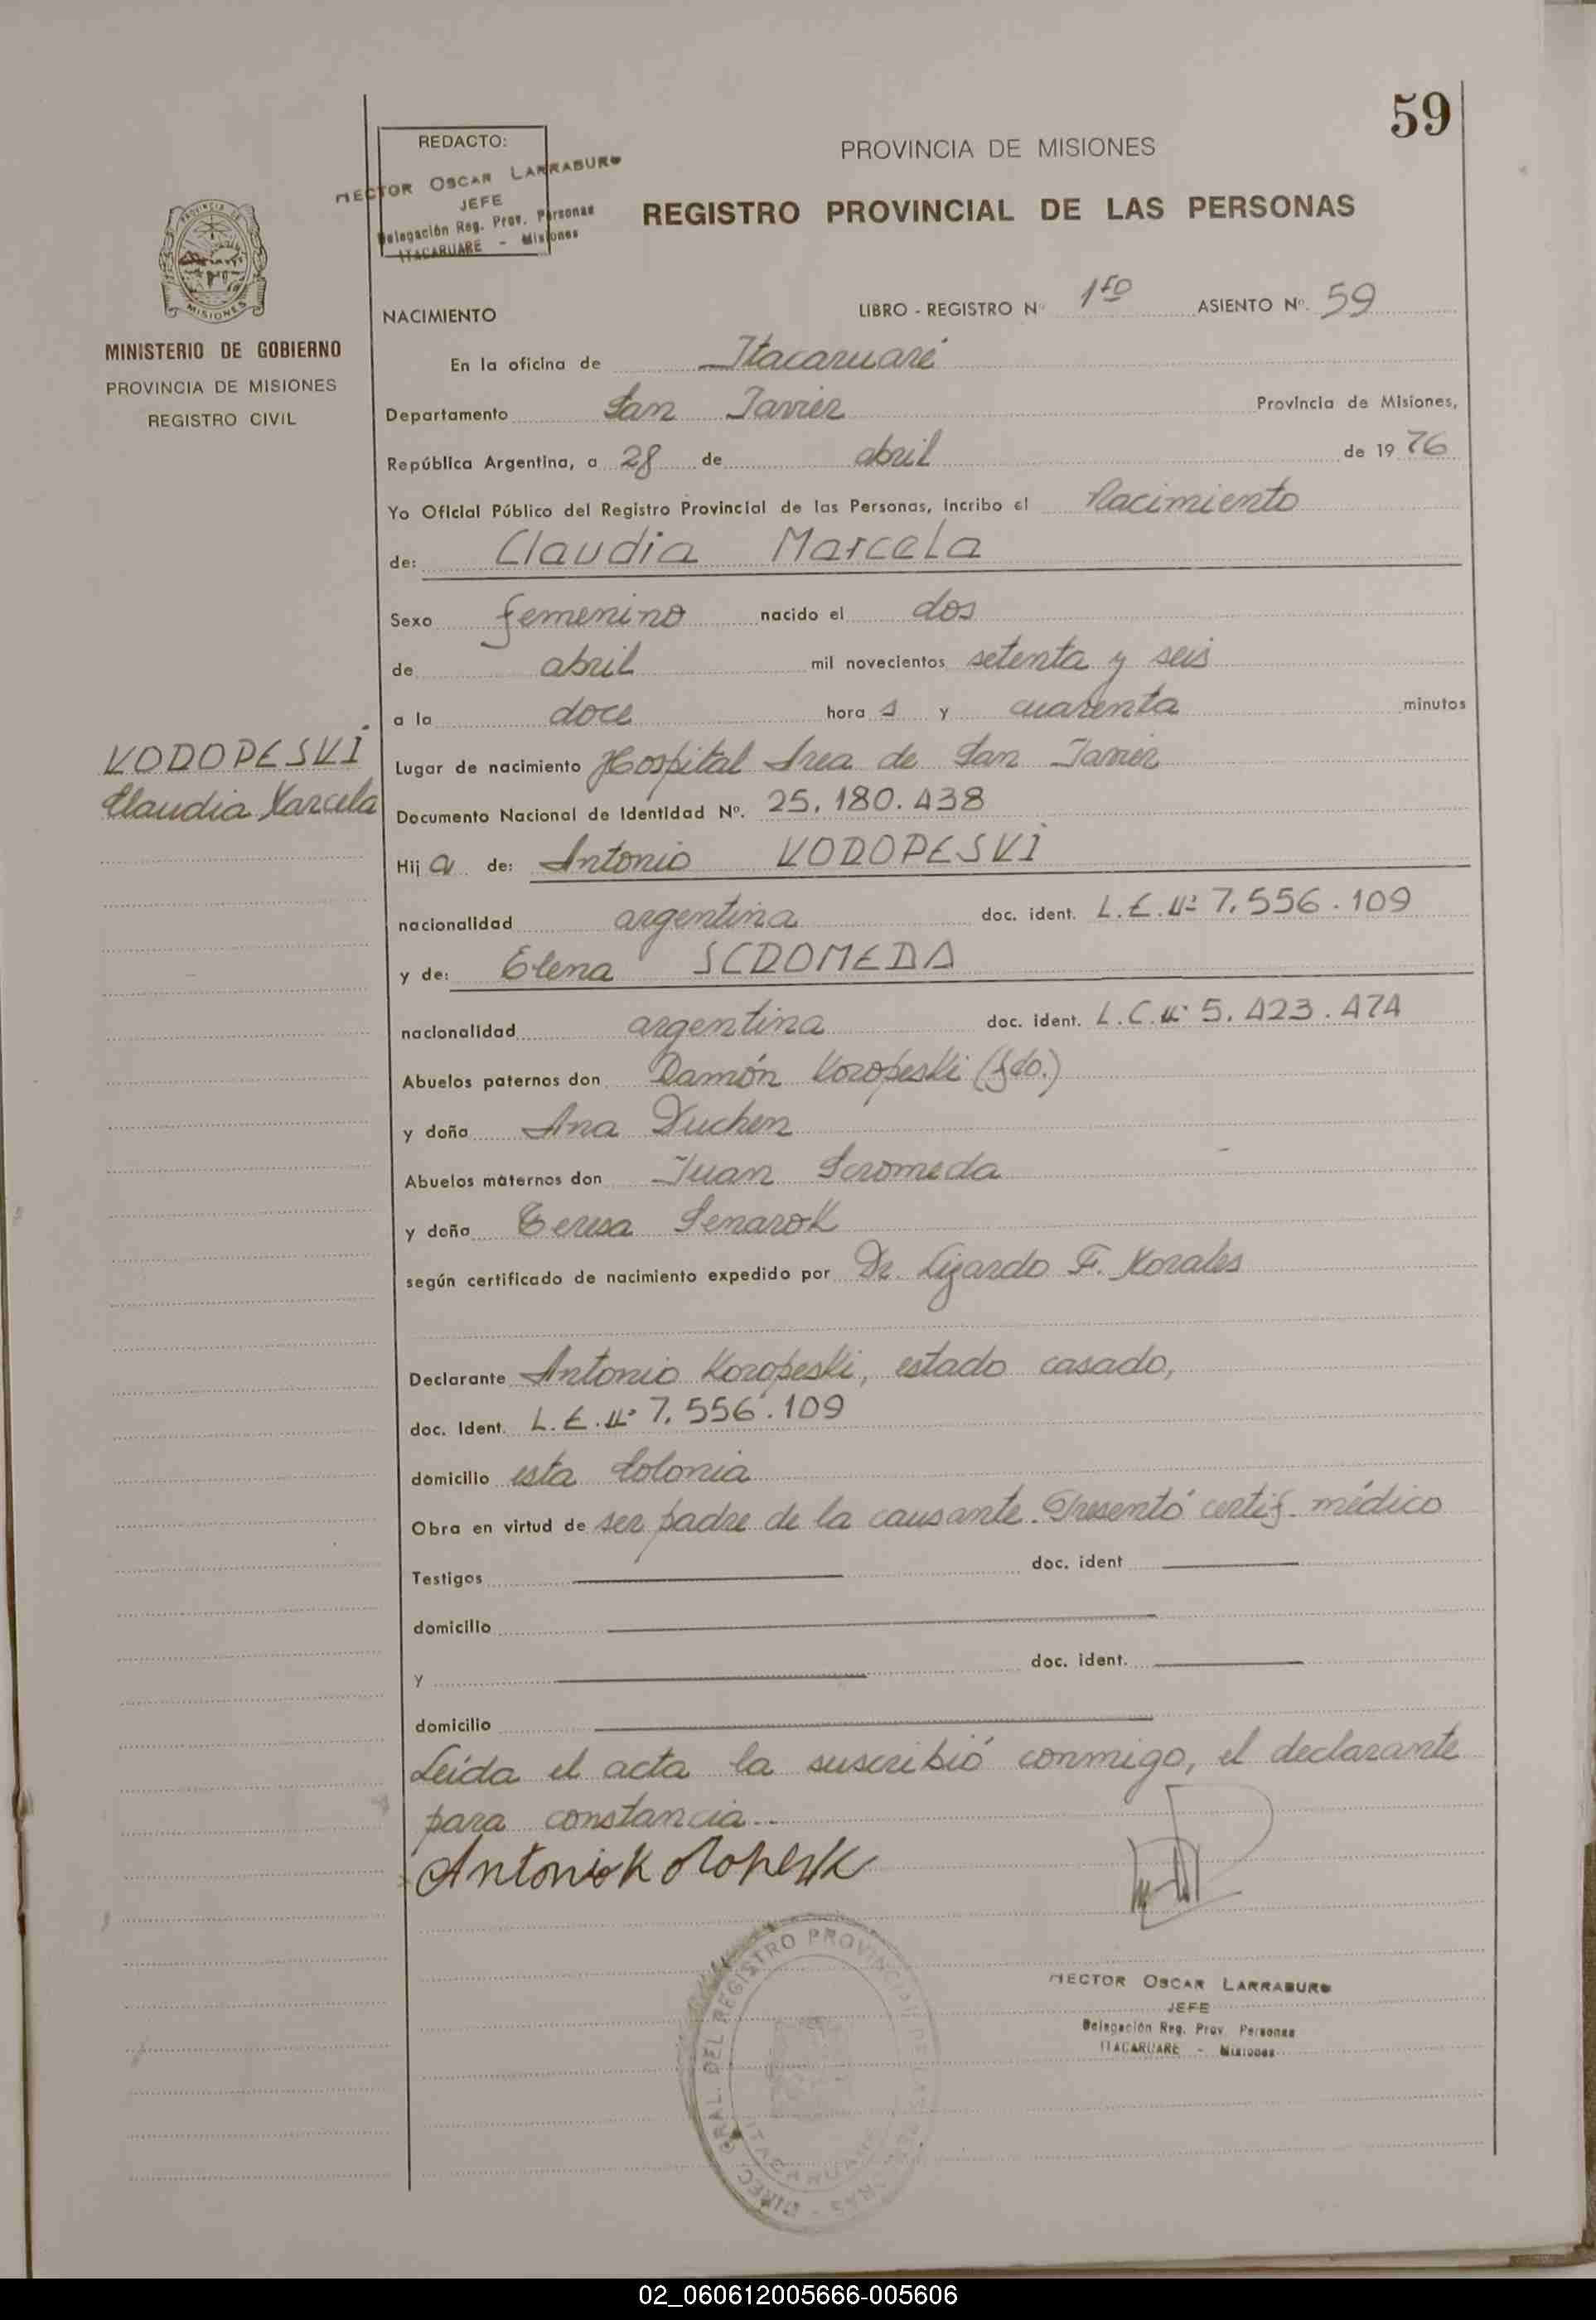 59
REDACTO:
HECTOR OSCAR LARRABURO
JEFE
Delegación Reg. Prov. Personas
ITACARUARE - Misiones
PROVINCIA DE MISIONES
REGISTRO PROVINCIAL DE LAS PERSONAS
MINISTERIO DE GOBIERNO
PROVINCIA DE MISIONES
REGISTRO CIVIL
NACIMIENTO
LIBRO - REGISTRO Nº 1ro ASIENTO Nº. 59
En la oficina de Itacaruaré
Departamento San Javier Provincia de Misiones,
República Argentina, a 28 de abril de 1976
Yo Oficial Público del Registro Provincial de las Personas, incribo el Nacimiento
de: Claudia Marcela
Sexo femenino nacido el dos
de abril mil novecientos setenta y seis
a la doce hora s y cuarenta minutos
KOROPESKI
Claudia Marcela
Lugar de nacimiento Hospital Area de San Javier
Documento Nacional de Identidad Nº. 25.180.438
Hij a de: Antonio KOROPESKI
nacionalidad argentina doc. ident. L.E.Nº 7.556.109
y de: Elena SCROMEDA
nacionalidad argentina doc. ident. L.C.Nº 5.423.474
Abuelos paternos don Ramón Koropeski (fdo.)
y doña Ana
Abuelos maternos don Juan Scromeda
y doña Teresa Senarok
según certificado de nacimiento expedido por Dr. Lizardo F. Morales
Declarante Antonio Koropeski, estado casado,
doc. Ident. L.E.Nº 7.556.109
domicilio esta Colonia
Obra en virtud de ser padre de la causante. Presentó certif. médico
Testigos doc. ident
domicilio
y doc. ident.
domicilio
Leída el acta la suscribió conmigo, el declarante
para constancia.-
Antonio Koropeski
DIREC. GRAL. DEL REGISTRO PROVINCIAL DE LAS PERSONAS - ITACARUARE
HECTOR OSCAR LARRABURO
JEFE
Delegación Reg. Prov. Personas
ITACARUARE - Misiones
02_060612005666-005606